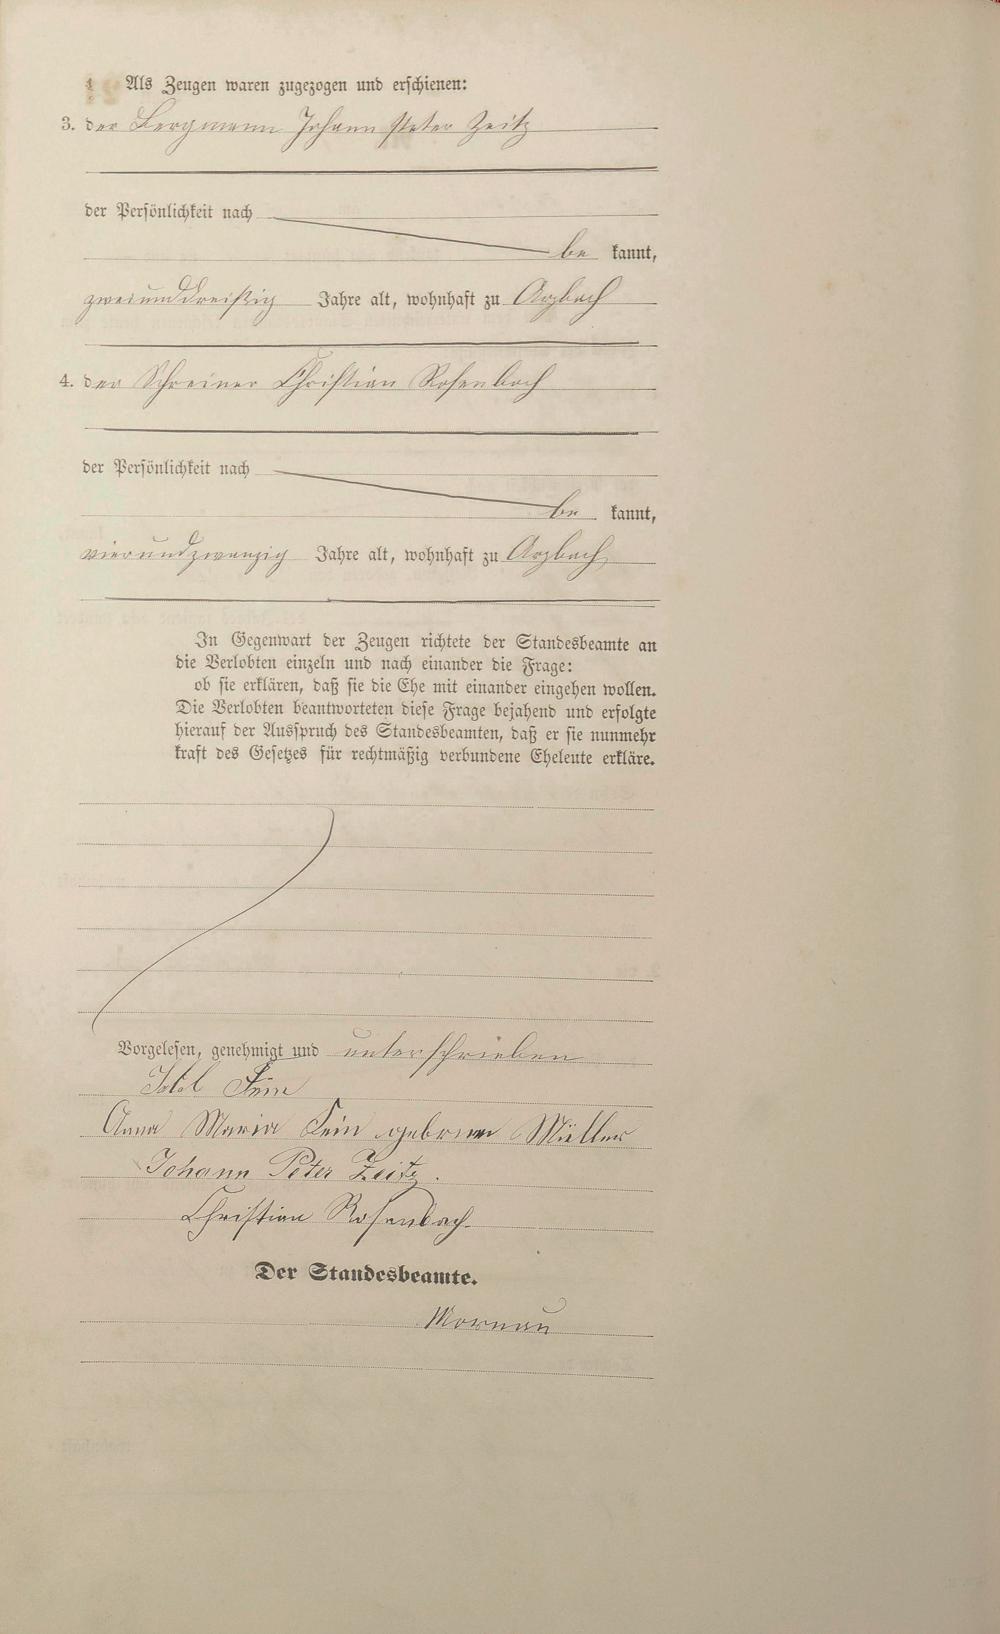 Als Zeugen waren zugezogen und erschienen:
3. der Bergmann Johann Peter Zeitz
der Persönlichkeit nach
be kannt,
zweiunddreißig Jahre alt, wohnhaft zu Arzbach
4. der Schreiner Christian Rosenbach
der Persönlichkeit nach
be kannt,
vierundzwanzig Jahre alt, wohnhaft zu Arzbach
In Gegenwart der Zeugen richtete der Standesbeamte an
die Verlobten einzeln und nach einander die Frage:
ob sie erklären, daß sie die Ehe mit einander eingehen wollen.
Die Verlobten beantworteten diese Frage bejahend und erfolgte
hierauf der Ausspruch des Standesbeamten, daß er sie nunmehr
kraft des Gesetzes für rechtmäßig verbundene Eheleute erkläre.
Vorgelesen, genehmigt und unterschrieben
Fein
Anna Maria Fein geborene Müller
Johann Peter Zeitz.
Christian Rosenbach.
Der Standesbeamte.
Mornau